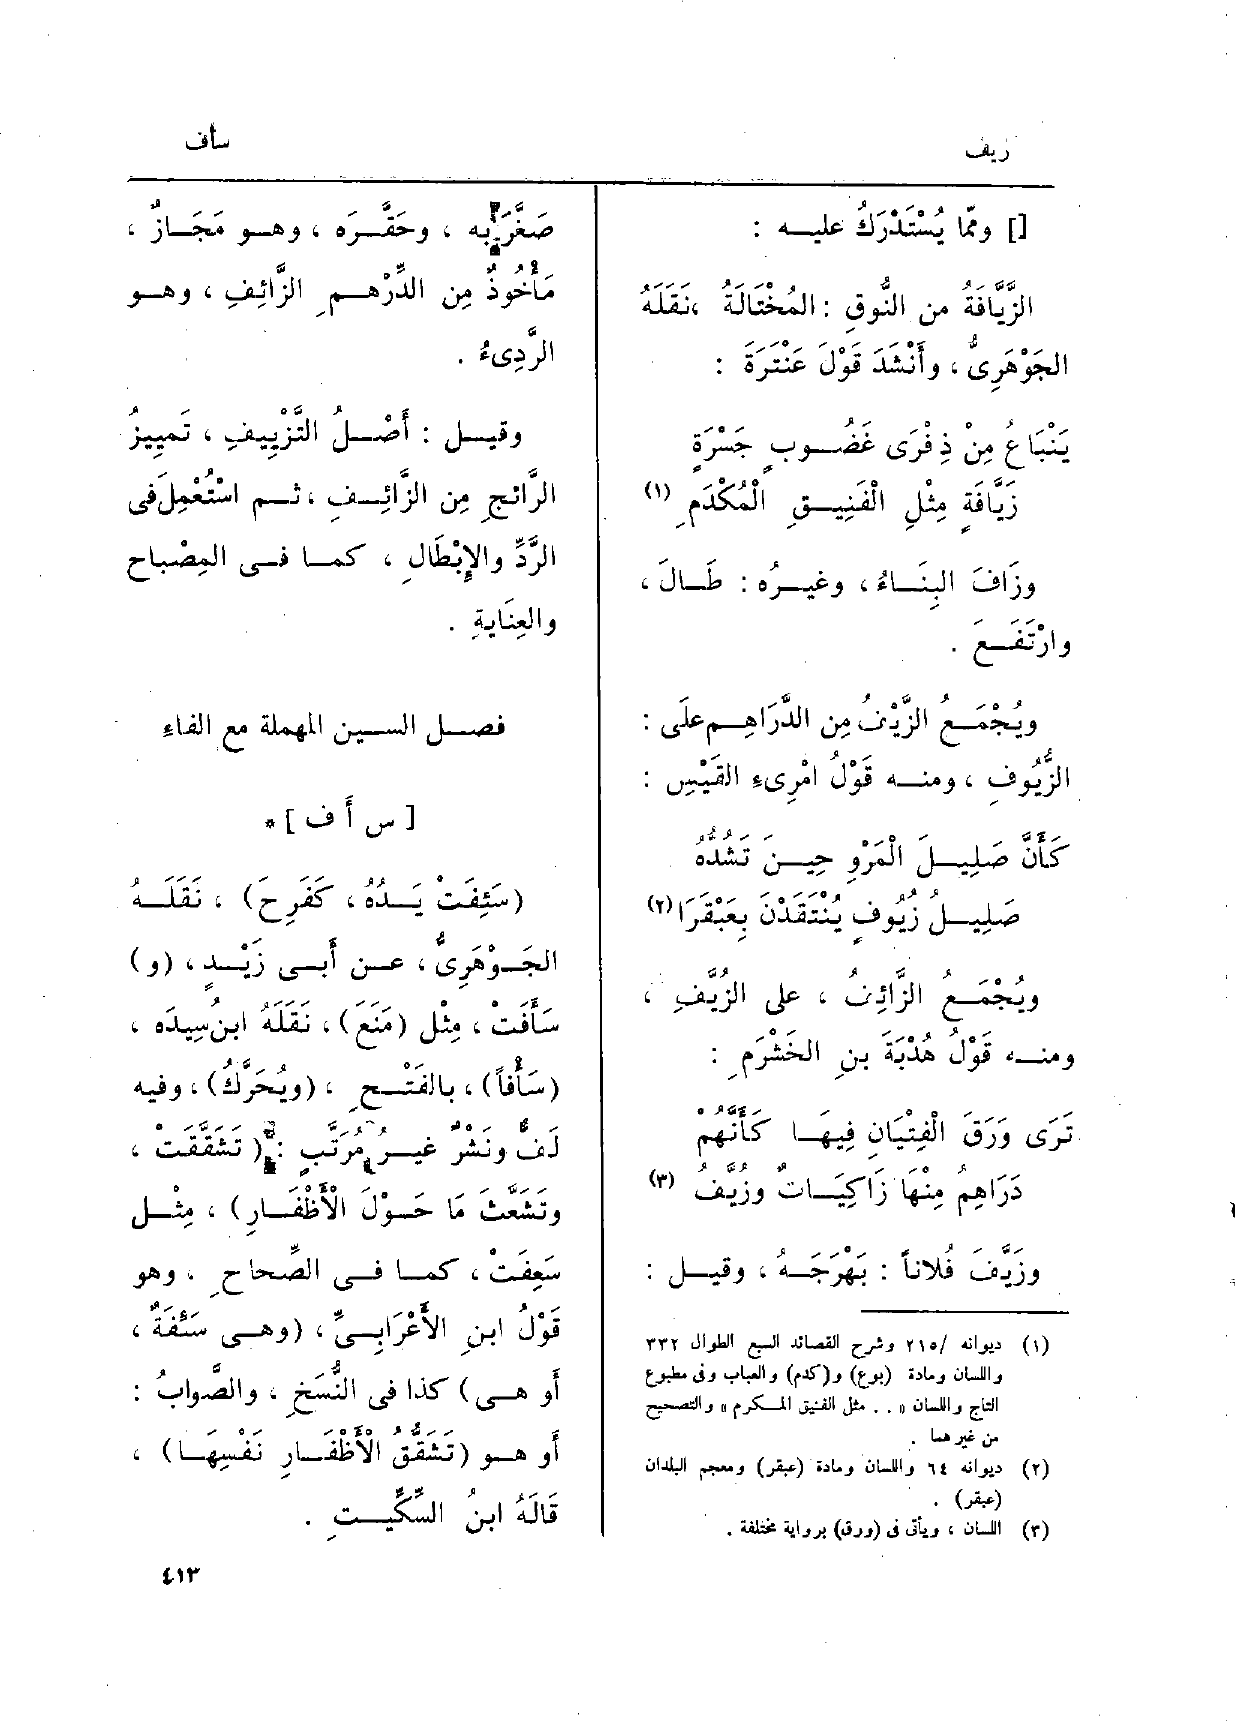 زيف
سأف
[] ومّا يُسْتَدْرَكُ عليه :
الزَّيَّافَةُ من النُّوقِ : المُخْتَالَةُ ، نَقَلَهُ
الجَوْهَرِىُّ ، وأَنْشَدَ قَوْلَ عَنْتَرَةَ :
يَنْبَاعُ مِنْ ذِفْرَى غَضُوبٍ جَسْرَةٍ
زَيَّافَةٍ مِثْلِ الْفَنِيقِ الْمُكْدَمِ (١)
وزَافَ البِنَاءُ ، وغيرُه : طَالَ ،
وارْتَفَعَ .
ويُجْمَعُ الزَّيْفُ مِن الدَّرَاهِمِ علَى :
الزُّيُوفِ ، ومنه قَوْلُ امْرِىءِ القَيْسِ :
كَأَنَّ صَلِيلَ الْمَرْوِ حِينَ تَشُدُّهُ
صَلِيلُ زُيُوفٍ يُنْتَقَدْنَ بِعَبْقَرَا (٢)
ويُجْمَعُ الزَّائِفُ ، على الزُّيَّفِ ،
ومنه قَوْلُ هُدْبَةَ بنِ الخَشْرَمِ :
تَرَى وَرَقَ الْفِتْيَانِ فِيهَا كَأَنَّهُمْ
دَرَاهِمُ مِنْهَا زَاكِيَاتٌ وزُيَّفُ (٣)
وزَيَّفَ فُلاناً : بَهْرَجَهُ ، وقيل :
(١) ديوانه /٢١٥ وشرح القصائد السبع الطوال ٣٣٢
واللسان ومادة (بوع) و(كدم) والعباب وفى مطبوع
التاج واللسان « . . مثل الفنيق المكرم » والتصحيح
من غيرهما .
(٢) ديوانه ٦٤ واللسان ومادة (عبقر) ومعجم البلدان
(عبقر) .
(٣) اللسان ، ويأتى فى (ورق) برواية مختلفة .
صَغَّرَ بِه ، وحَقَّرَه ، وهو مَجَازٌ ،
مَأْخُوذٌ مِن الدِّرْهمِ الزَّائِفِ ، وهو
الرَّدِىءُ .
وقيل : أَصْلُ التَّزْيِيفِ ، تَمْيِيزُ
الرَّائجِ مِن الزَّائِفِ ، ثم اسْتُعْمِلَ فى
الرَّدِّ والإِبْطَالِ ، كما فى المِصْباح
والعِنَايةِ .
فصل السين المهملة مع الفاء
[ س أ ف ] *
(سَئِفَتْ يَدُهُ ، كَفَرِحَ) ، نَقَلَهُ
الجَوْهَرِىُّ ، عن أَبى زَيْدٍ ، (و)
سَأَفَتْ ، مِثْل (مَنَعَ) ، نَقَلَهُ ابنُ سِيدَه ،
(سَأْفاً) ، بالفَتْحِ ، (ويُحَرَّكُ) ، وفيه
لَفٌّ ونَشْرٌ غيرُ مُرَتَّبٍ : (تَشَقَّقَتْ ،
وتَشَعَّثَ مَا حَوْلَ الأَظْفَارِ) ، مِثْل
سَعِفَتْ ، كما فى الصِّحاحِ ، وهو
قَوْلُ ابنِ الأَعْرَابِىِّ ، (وهى سَئْفَةٌ ،
أو هى) كذا فى النُّسَخِ ، والصَّوابُ :
أو هو (تَشَقُّقُ الأَظْفَارِ نَفْسِهَا) ،
قَالَهُ ابنُ السِّكِّيتِ .
٤١٣